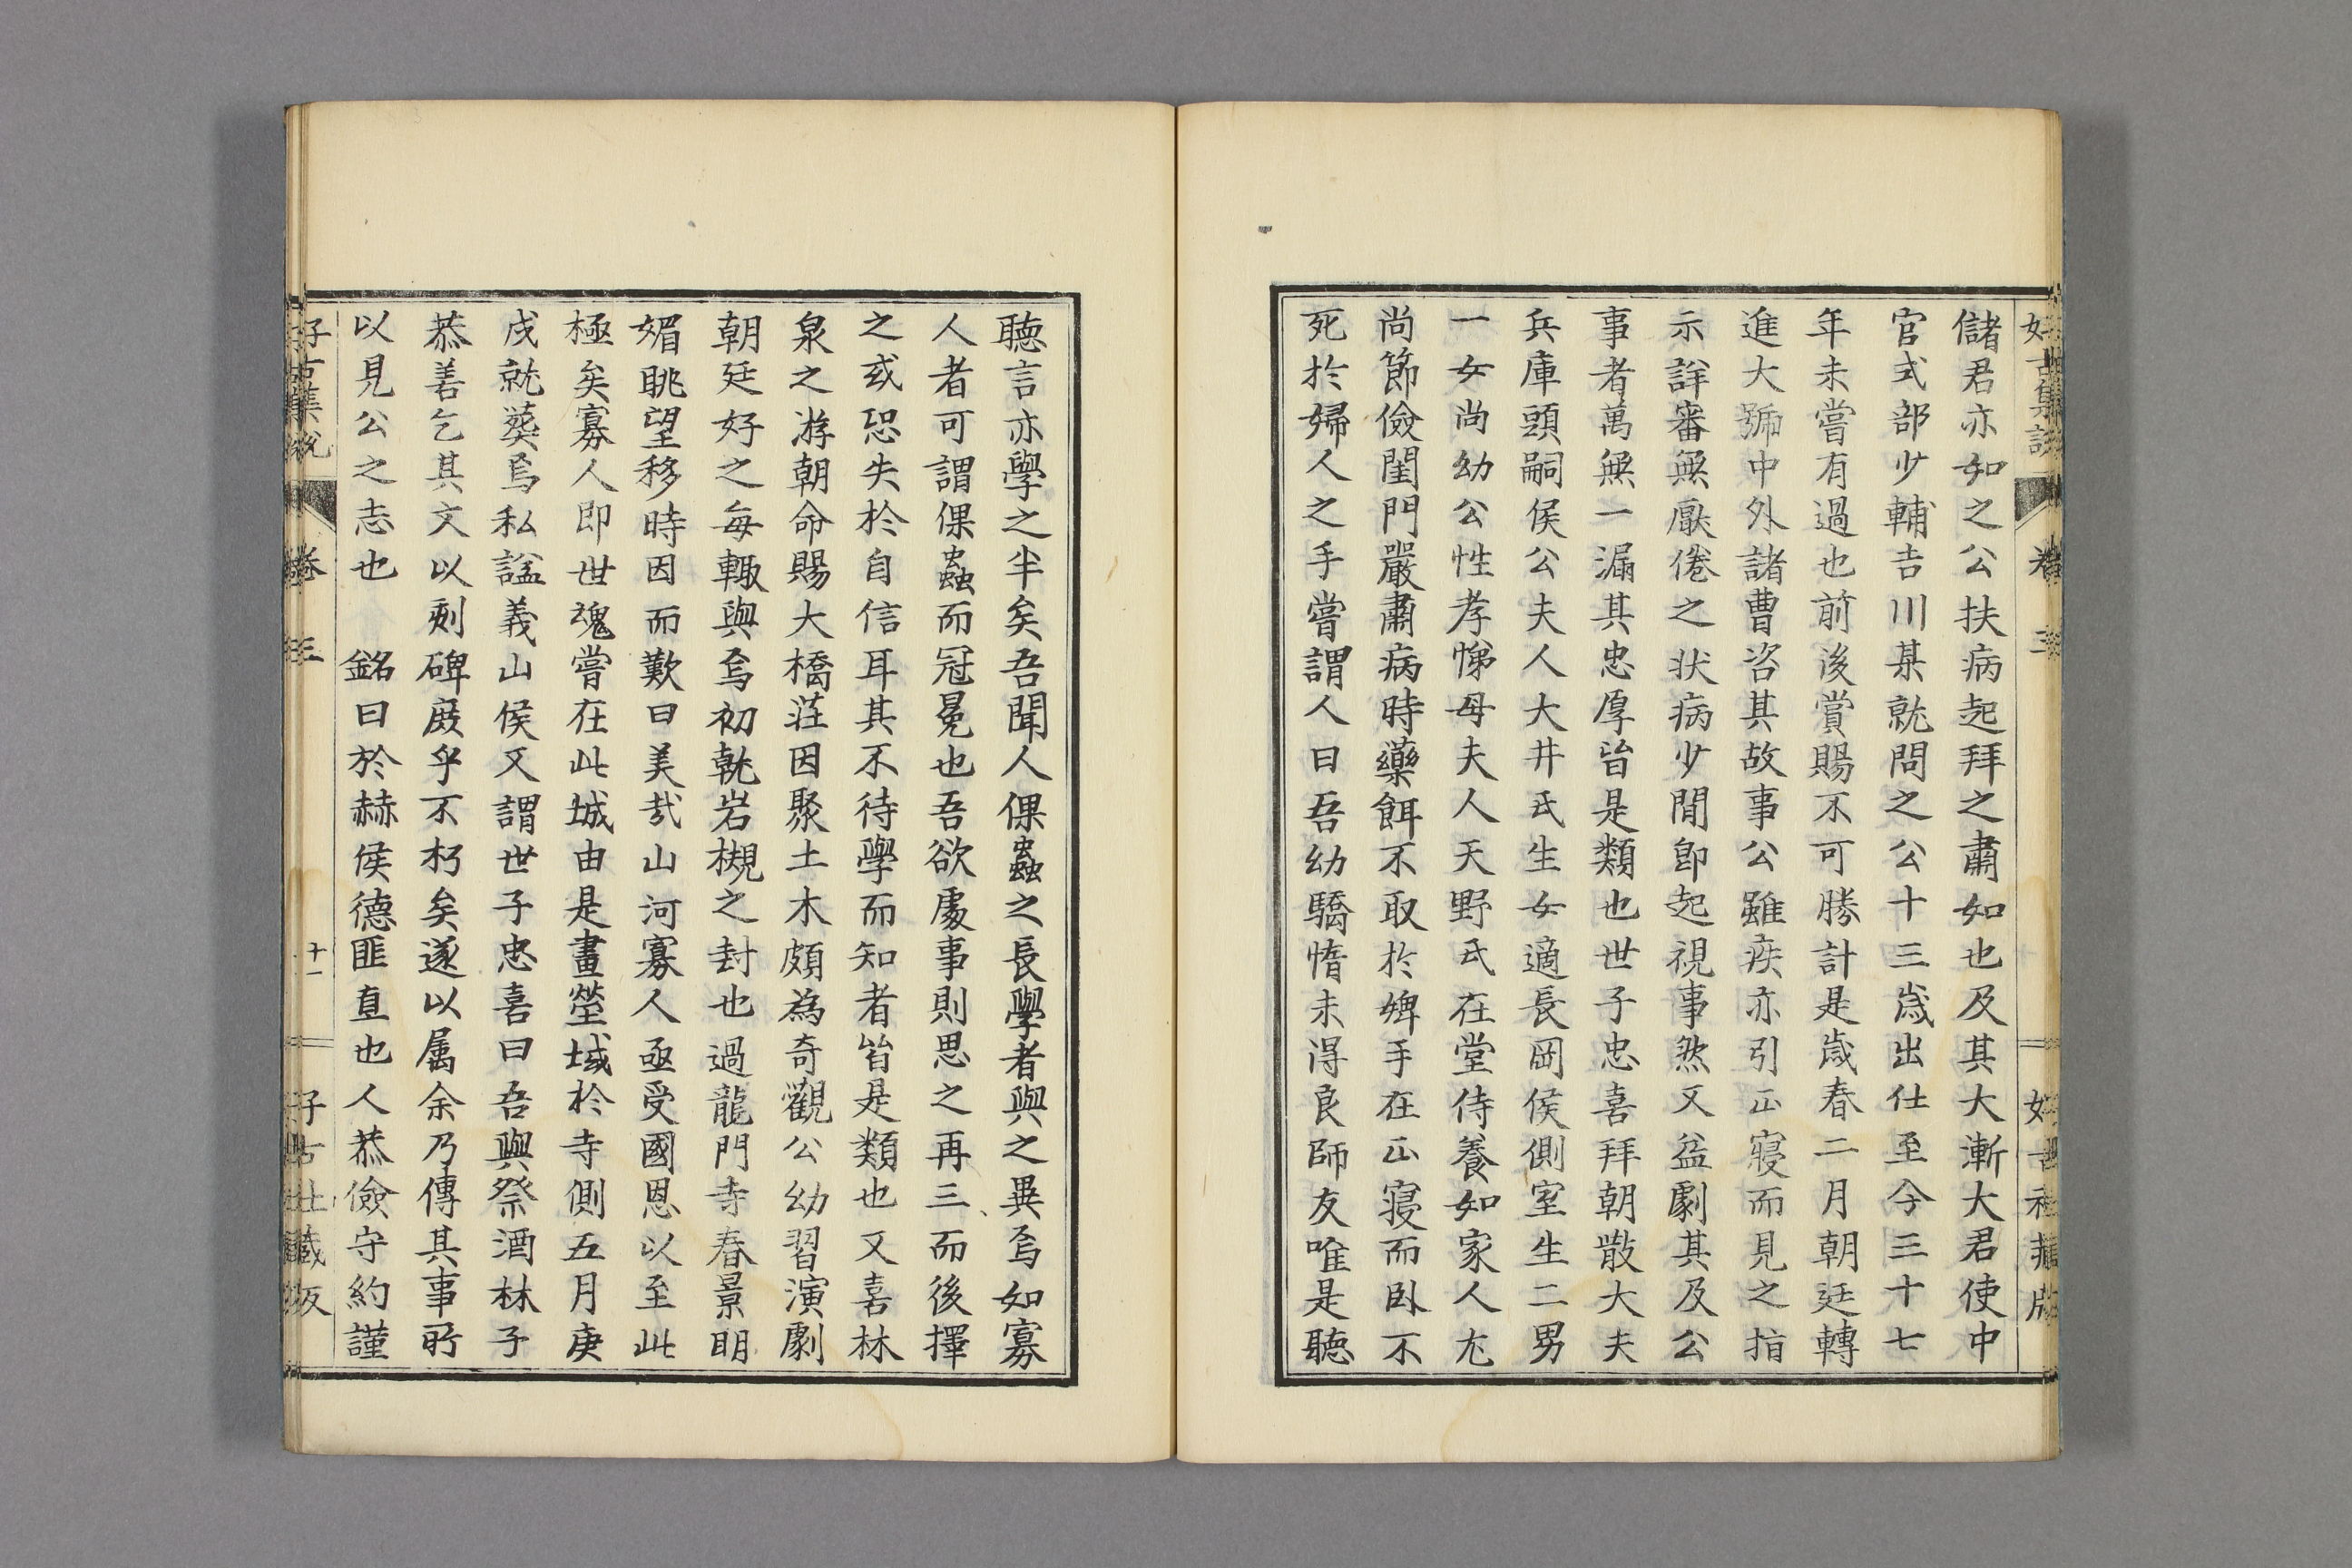 儲君亦如之公扶病起拜之肅如也及其大漸大君使中
官式部少輔吉川某就問之公十三歳出仕至今三十七
年未嘗有過也前後賞賜不可勝計是歳春二月朝廷轉
進大號中外諸曹咨其故事公雖疾亦引正寢而見之指
示詳審無厭倦之状病少間卽起視事然又益劇其及公
事者萬無一漏其忠厚皆是類也世子忠喜拜朝散大夫
兵庫頭嗣侯公夫人大井氏生女適長岡侯側室生二男
一女尚幼公性孝悌母夫人天野氏在堂侍養如家人尤
尚節儉閨門嚴肅病時藥餌不取於婢手在正寢而臥不
死於婦人之手嘗謂人曰吾幼驕惰未得良師友唯是聽
聽言亦學之半矣吾聞人倮蟲之長學者與之異焉如寡
人者可謂倮蟲而冠冕也吾欲處事則思之再三而後擇
之或恐失於自信耳其不待學而知者皆是類也又喜林
泉之游朝命賜大橋莊因聚土木頗為奇觀公幼習演劇
朝廷好之每輙與焉初就岩槻之封也過龍門寺春景明
媚眺望移時因而歎曰美哉山河寡人亟受國恩以至此
極矣寡人即世魂嘗在此城由是畫塋域於寺側五月庚
戌就葬焉私謚義山侯又謂世子忠喜曰吾與祭酒林子
恭善乞其文以刻碑庶乎不朽矣遂以属余乃傳其事所
以見公之志也　銘曰於赫侯德匪直也人恭儉守約謹
好古集説　卷三　十一